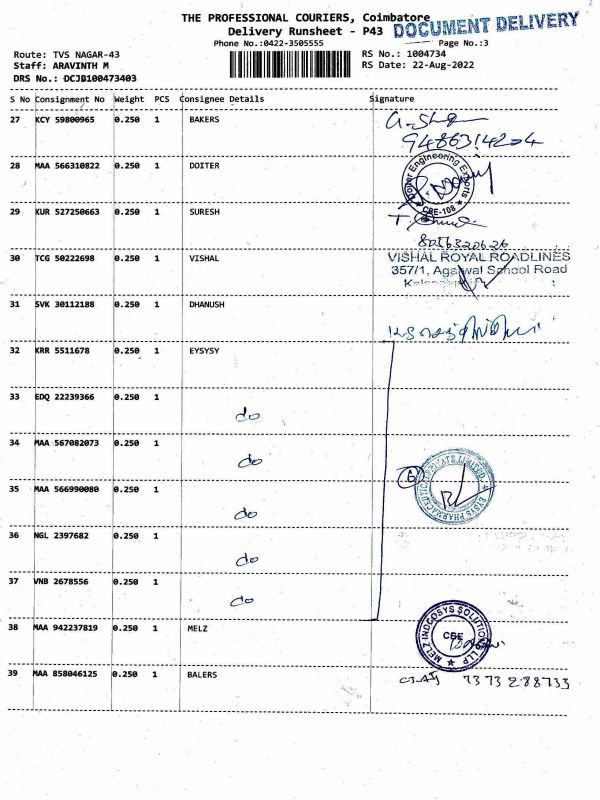 THE PROFESSIONAL COURIERS, Coimbatore
DOCUMENT DELIVERY
Delivery Runsheet - P43
Phone No.:0422-3505555
Page No.:3
Route: TVS NAGAR-43
RS No.: 1004734
Staff: ARAVINTH M
RS Date: 22-Aug-2022
DRS No.: DCJB100473403
S No Consignment No Weight PCS Consignee Details Signature
27 KCY 59800965 0.250 1 BAKERS
9486314204
28 MAA 566310822 0.250 1 DOITER
Engineering Exports
CBE-108
29 KUR 527250663 0.250 1 SURESH
8056320626
30 TCG 50222698 0.250 1 VISHAL
VISHAL ROYAL ROADLINES
357/1, Agarwal School Road
31 SVK 30112188 0.250 1 DHANUSH
32 KRR 5511678 0.250 1 EYSYSY
33 EDQ 22239366 0.250 1
do
34 MAA 567082073 0.250 1
do
35 MAA 566990080 0.250 1
6
EYSYS PHARMACEUTIC PRIVATE LIMITED
do
36 NGL 2397682 0.250 1
do
37 VNB 2678556 0.250 1
do
38 MAA 942237819 0.250 1 MELZ
MELZ INDCOSYS SOLUTION LLP
CBE
39 MAA 858046125 0.250 1 BALERS
7373288733